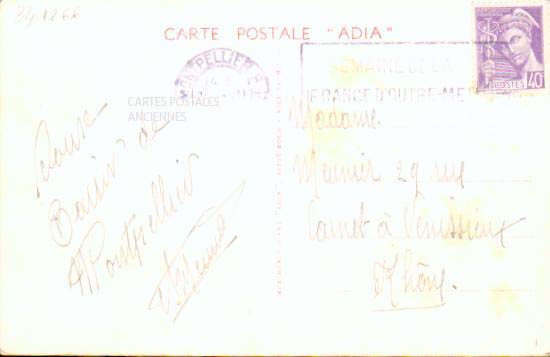 34 1266
CARTE POSTALE "ADIA"
MONTPELLIER
SEMAINE DE LA
FRANCE D'OUTRE-MER
POSTES 40
CARTES POSTALES
ANCIENNES
Bons
de
Montpellier
Madame
Meunier 29 rue
Carnot à Vénissieux
Rhône.